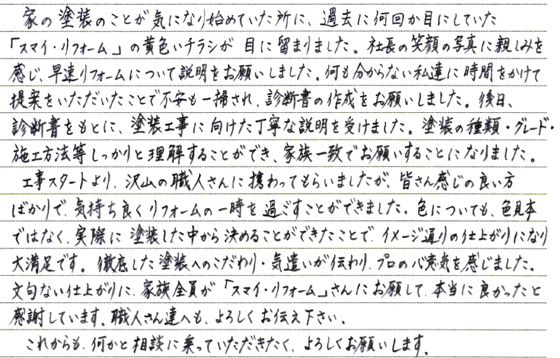 家の塗装のことが気になり始めていた所に、過去に何回か目にしていた
「スマイ・リフォーム」の黄色いチラシが目に留まりました。社長の笑顔の写真に親しみを
感じ、早速リフォームについて説明をお願いしました。何も分からない私達に時間をかけて
提案をいただいたことで不安も一掃され、診断書の作成をお願いしました。後日、
診断書をもとに、塗装工事に向けた丁寧な説明を受けました。塗装の種類・グレード・
施工方法等しっかりと理解することができ、家族一致でお願いすることになりました。
工事スタートより、沢山の職人さんに携わってもらいましたが、皆さん感じの良い方
ばかりで、気持ち良くリフォームの一時を過ごすことができました。色についても、色見本
ではなく、実際に塗装した中から決めることができたことで、イメージ通りの仕上がりになり
大満足です。徹底した塗装へのこだわり・気遣いが伝わり、プロの心意気を感じました。
文句ない仕上がりに、家族全員が「スマイ・リフォーム」さんにお願して、本当に良かったと
感謝しています。職人さん達へも、よろしくお伝え下さい。
これからも、何かと相談に乗っていただきたく、よろしくお願いします。